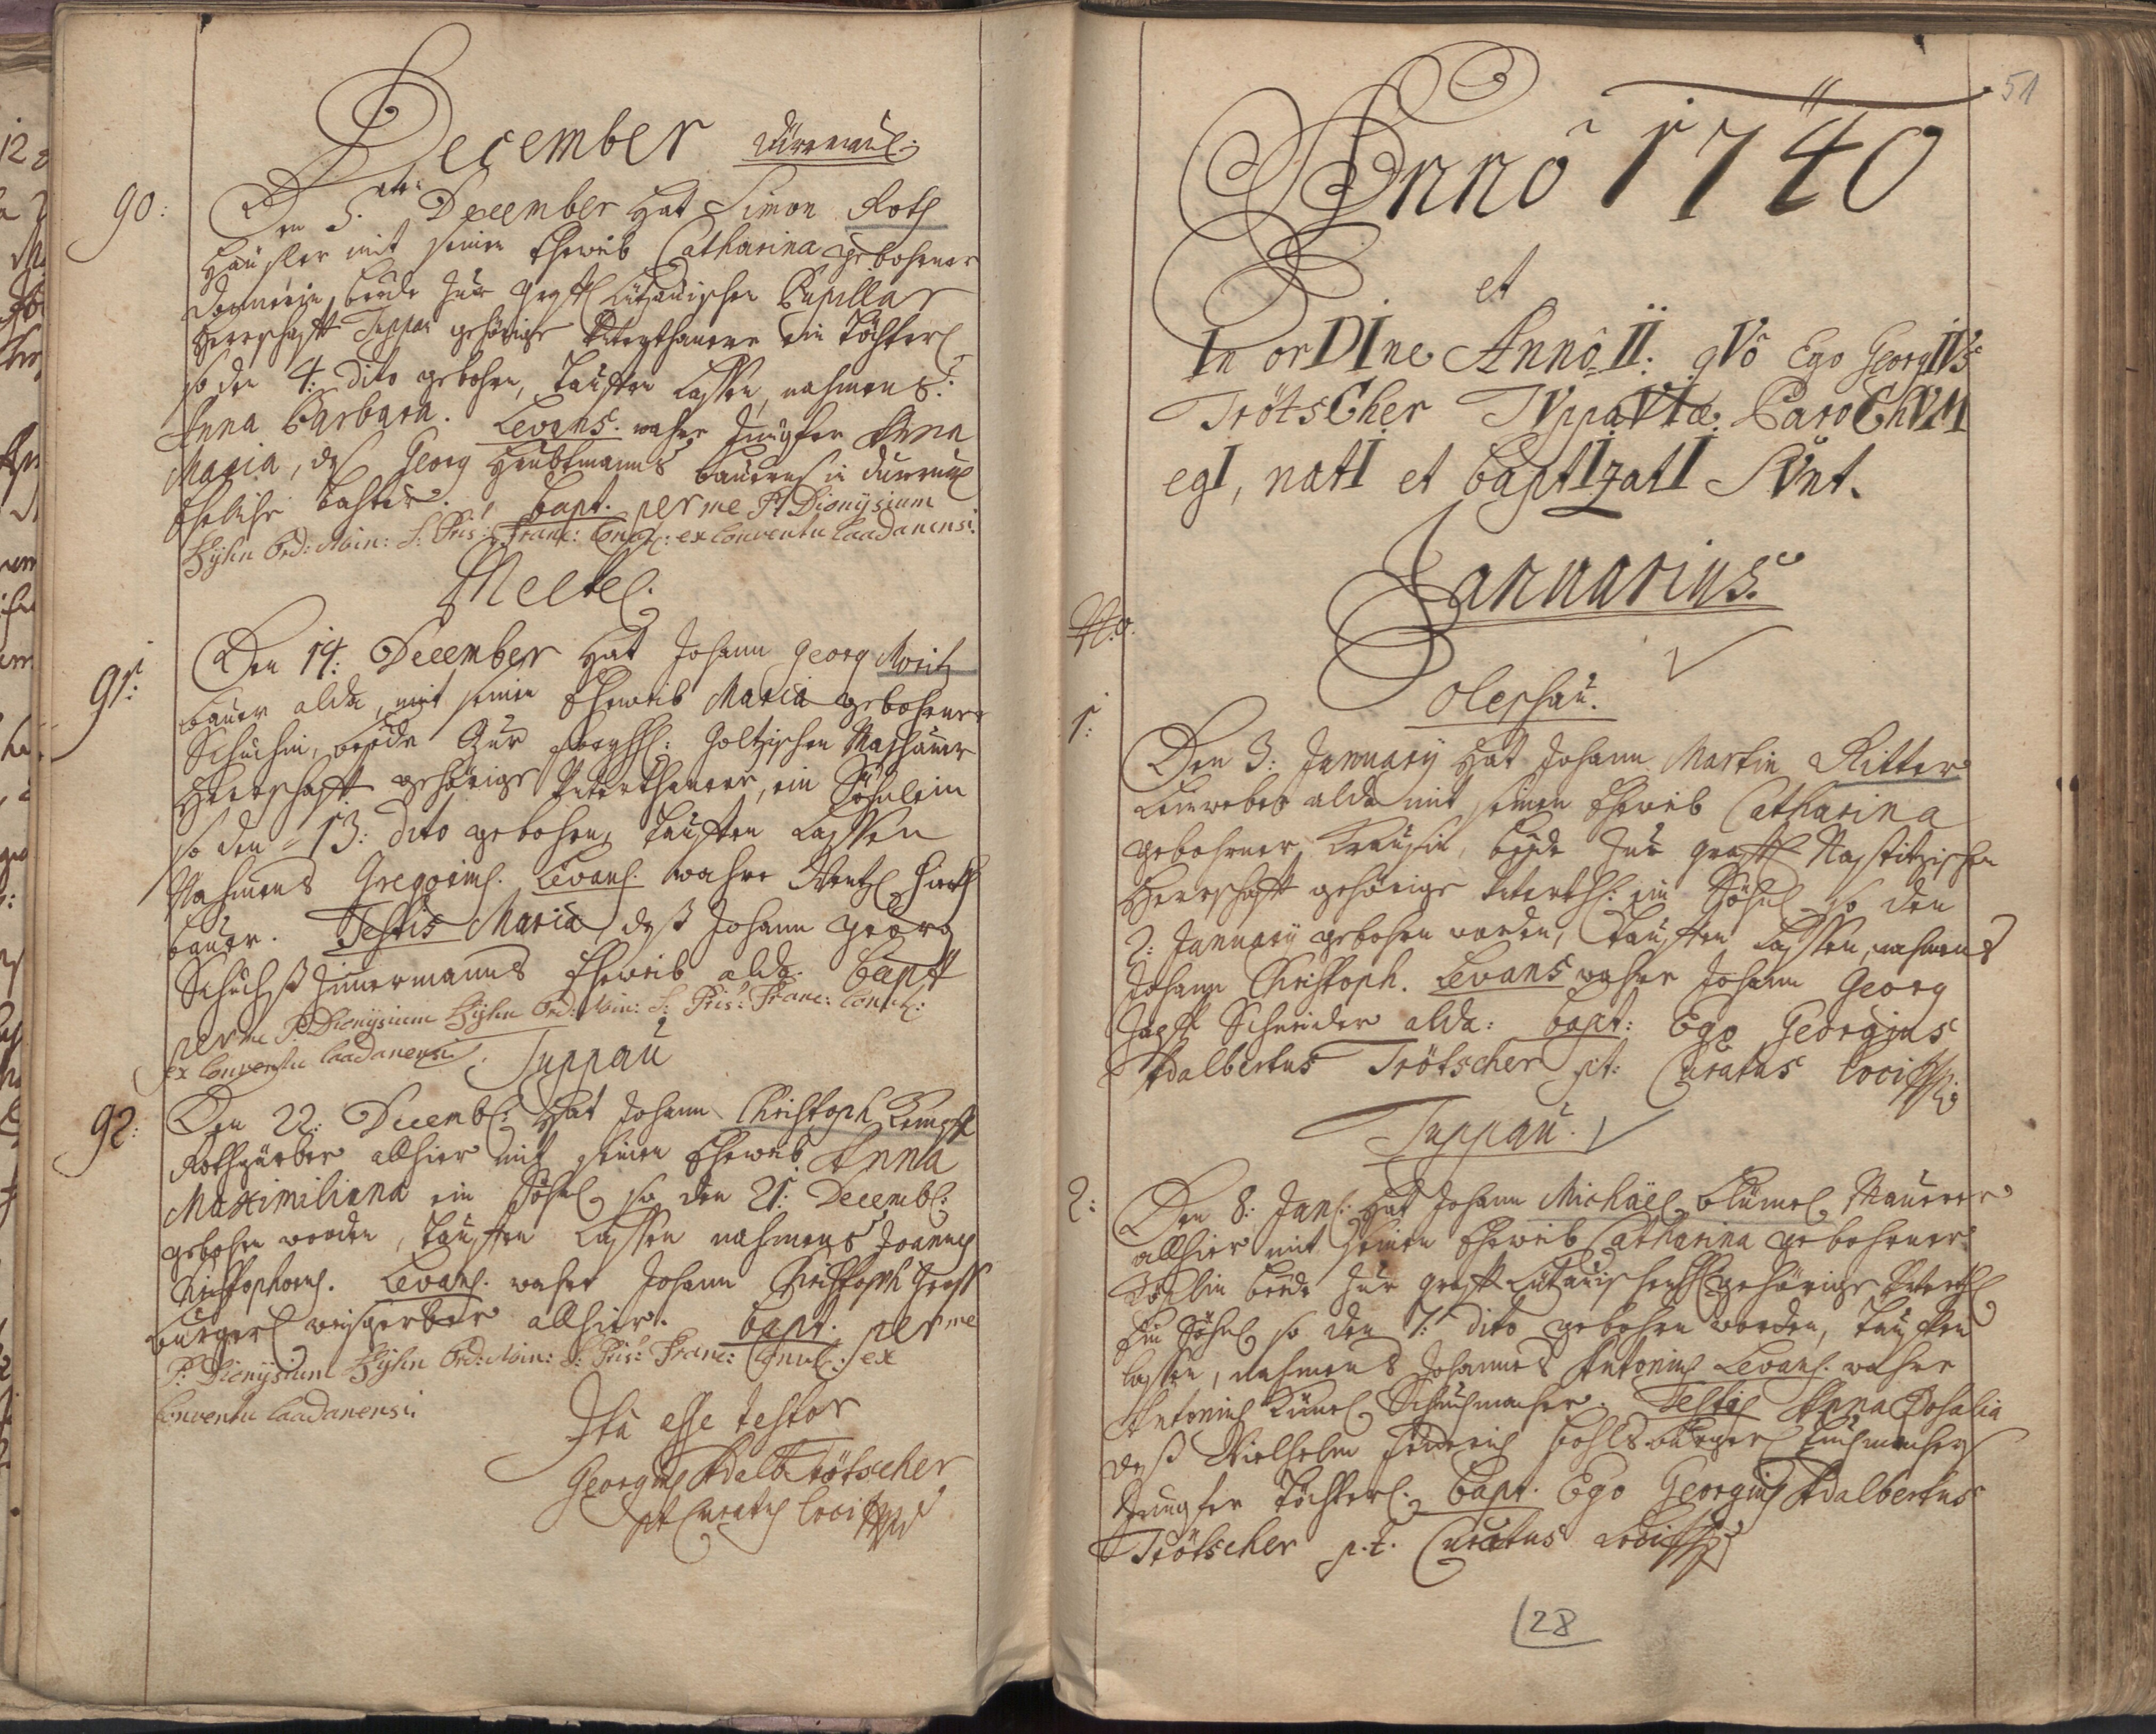 December Dürrmaul:
90:
Den 5.ten December Hat Simon Roth
Häusler mit seinen Eheweib Catharina gebohrner
beede zur gräfl Lützauischen Pupillar
Herrschafft Tuppau gehörige Unterthanen ein Töchterl
so den 4: dito gebohrn, Tauffen Lassen, nahmens:
Anna Barbara. Levans. wahre Jungfer Anna
Maria, deß Georg Haubtmanns bauerns in Dürrmaul
Eheliche Tochter. bapt. per me P: Dionysium
Hyhn Ord: Min: S: Pris: Franc: Conv: ex Conventu Caadanensi.
Meckl.
91:
Den 14: December Hat Johann Georg Moritz
bauer alda, mit seinen Eheweib Maria gebohrner
Schuchin, beede Zur Goltzischen Maschauer
Herrschafft gehörige Unterthanen, ein Söhnlein
so den 13: dito gebohrn, Tauffen Lassen
Nahmens Gregorius. Levans. wahre Wentzl
bauer. Testis Maria deß Johann Georg
Schuchß Zimmermanns Eheweib alda. bapt
per me P: Dionysium Hyhn Ord: Min: S: Pris: Franc: Convl:
ex Conventu Caadanensi.
Tuppau
92:
Den 22: Decembl: Hat Johann Christoph Kempff
Rothgärber allhier mit seinen Eheweib Anna
Maximiliana ein Söhnl so den 21: Decembl:
gebohrn worden, Tauffen Lassen nahmens Joannes
Christophorus. Levans. wahre Johann Christoph
burgerl weisgerber allhier. bapt. per me
P: Dionysium Hyhn Ord: Min: S: Pris: Franc: Convl: ex
Conventu Caadanensi.
Ita esse testor
Georgius Adalb Trötscher
pt Curatus loci
51
Anno 1740
et
In orDIne Annô II: qVô Ego GeorgIVs
TrötsCher TVppaVIæ ParoChVM
egI, natI et baptIzatI sVnt.
Januarius.
No.
Oleschau.
1:
Den 3: January Hat Johann Martin Ritter
Leinweber alda mit seinen Eheweib Catharina
gebohrner Krausin, beede zur gräffl Nastitzischen
Herrschafft gehörige Unterth: ein Söhnl so den
2: January gebohrn worden, Tauffen Lassen, nahmens
Johann Christoph. Levans wahre Johann Georg
Schneider alda: bapt: Ego Georgius
Adalbertus Trötscher pt: Curatus loci
Tuppau.
2:
Den 8: Janl: Hat Johann Michaël Blümel Maurer
allhier mit seinen Eheweib Catharina gebohrner
beede zur gräffl Lützauischen gehörige Unterth
Ein Söhnl so den 7: dito gebohrn worden, Tauffen
lassen, nahmens Johannes Antonius Levans. wahre
Antonius Schuchmacher. Testis Anna Rosalia
deß Wielhelm burgerl Tuchmachers
Jungfer Töchterl. Bapt. Ego Georgius Adalbertus
Trötscher p.t. Curatus Loci
28